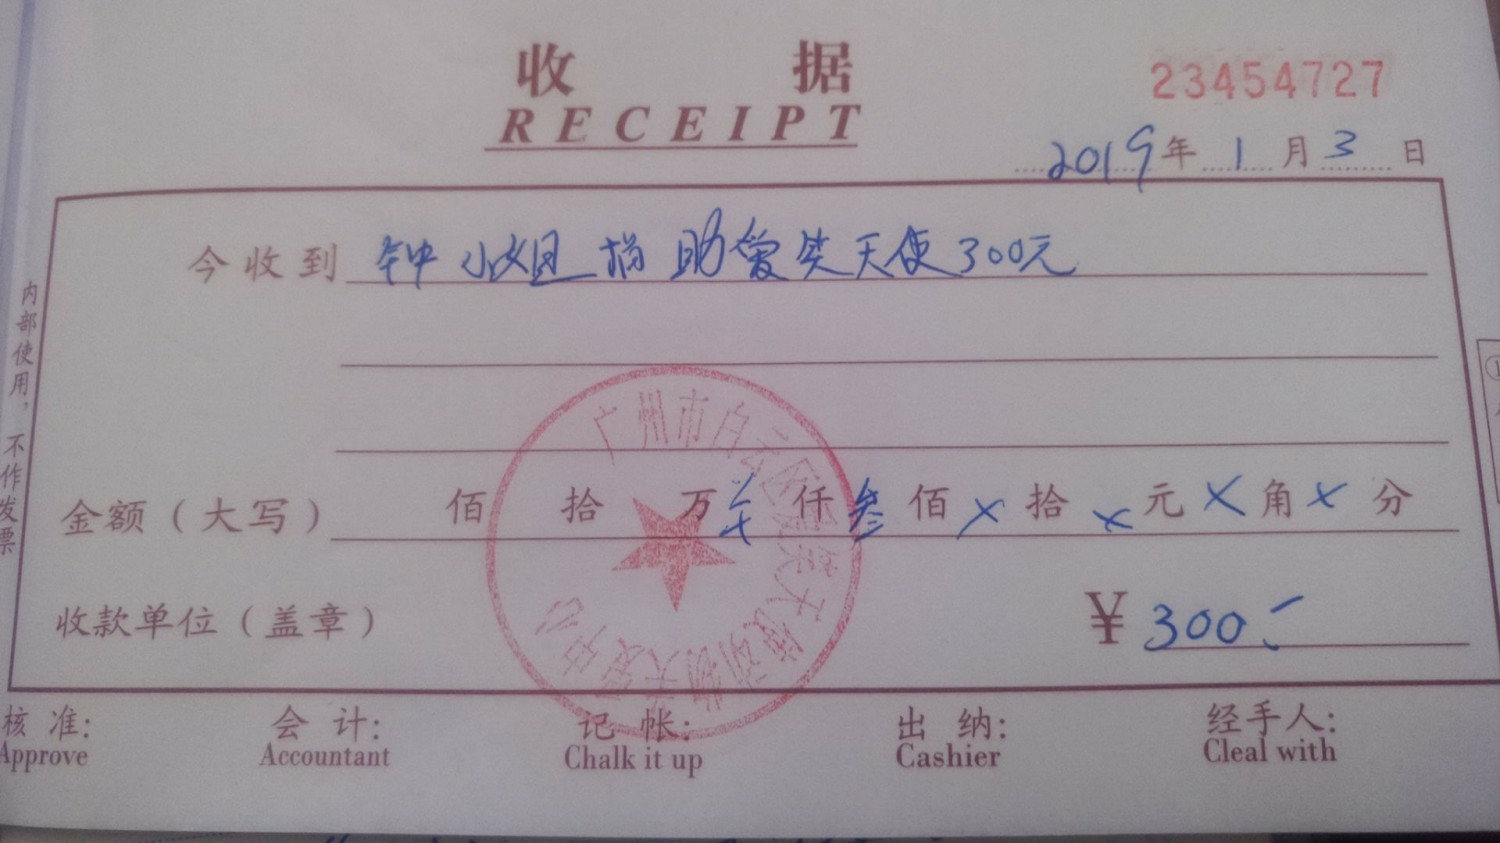 收据
RECEIPT
23454727
2019年1月3日
今收到 钟小姐捐助爱笑天使300元
金额（大写） 佰 拾 万 仟 叁佰 × 拾 × 元 × 角 × 分
收款单位（盖章） ¥ 300
核准: 会计: 记帐: 出纳: 经手人:
Approve Accountant Chalk it up Cashier Cleal with
内部使用，不作发票
广州市白云区 笑天使动物关爱中心